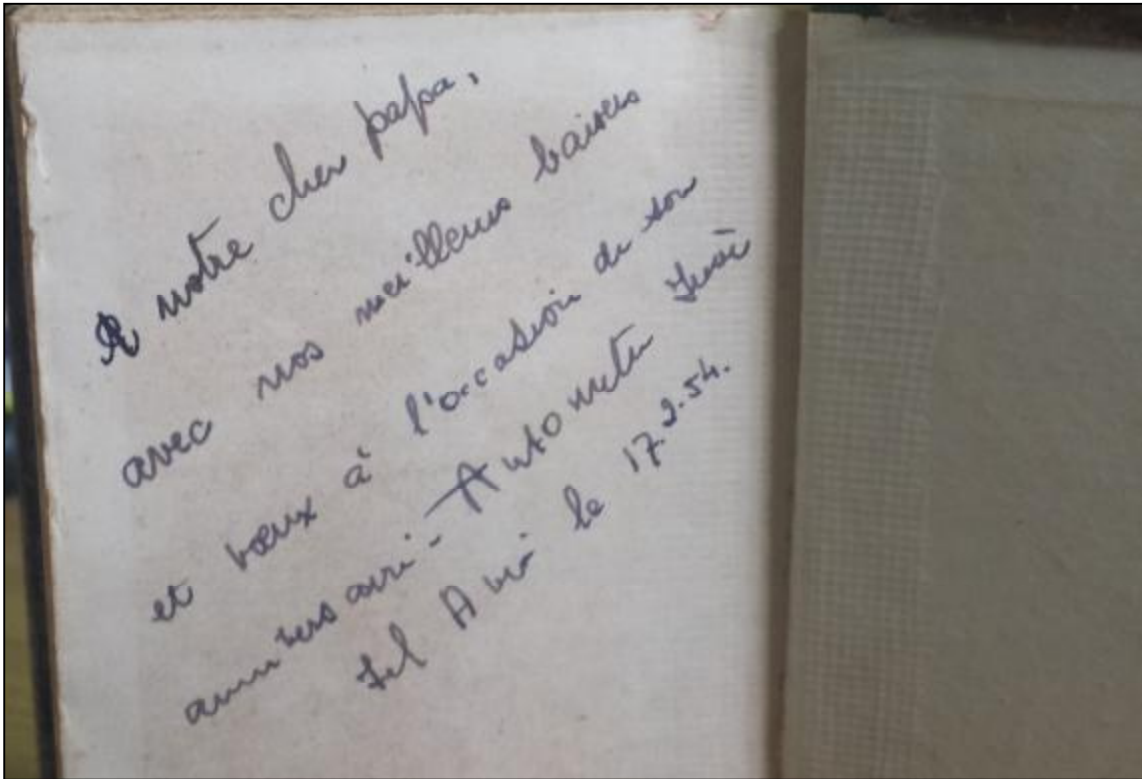 A notre cher papa,
avec nos meilleurs baisers
et vœux à l'occasion de son
anniversaire -
Tel Aviv le 17.2.54.